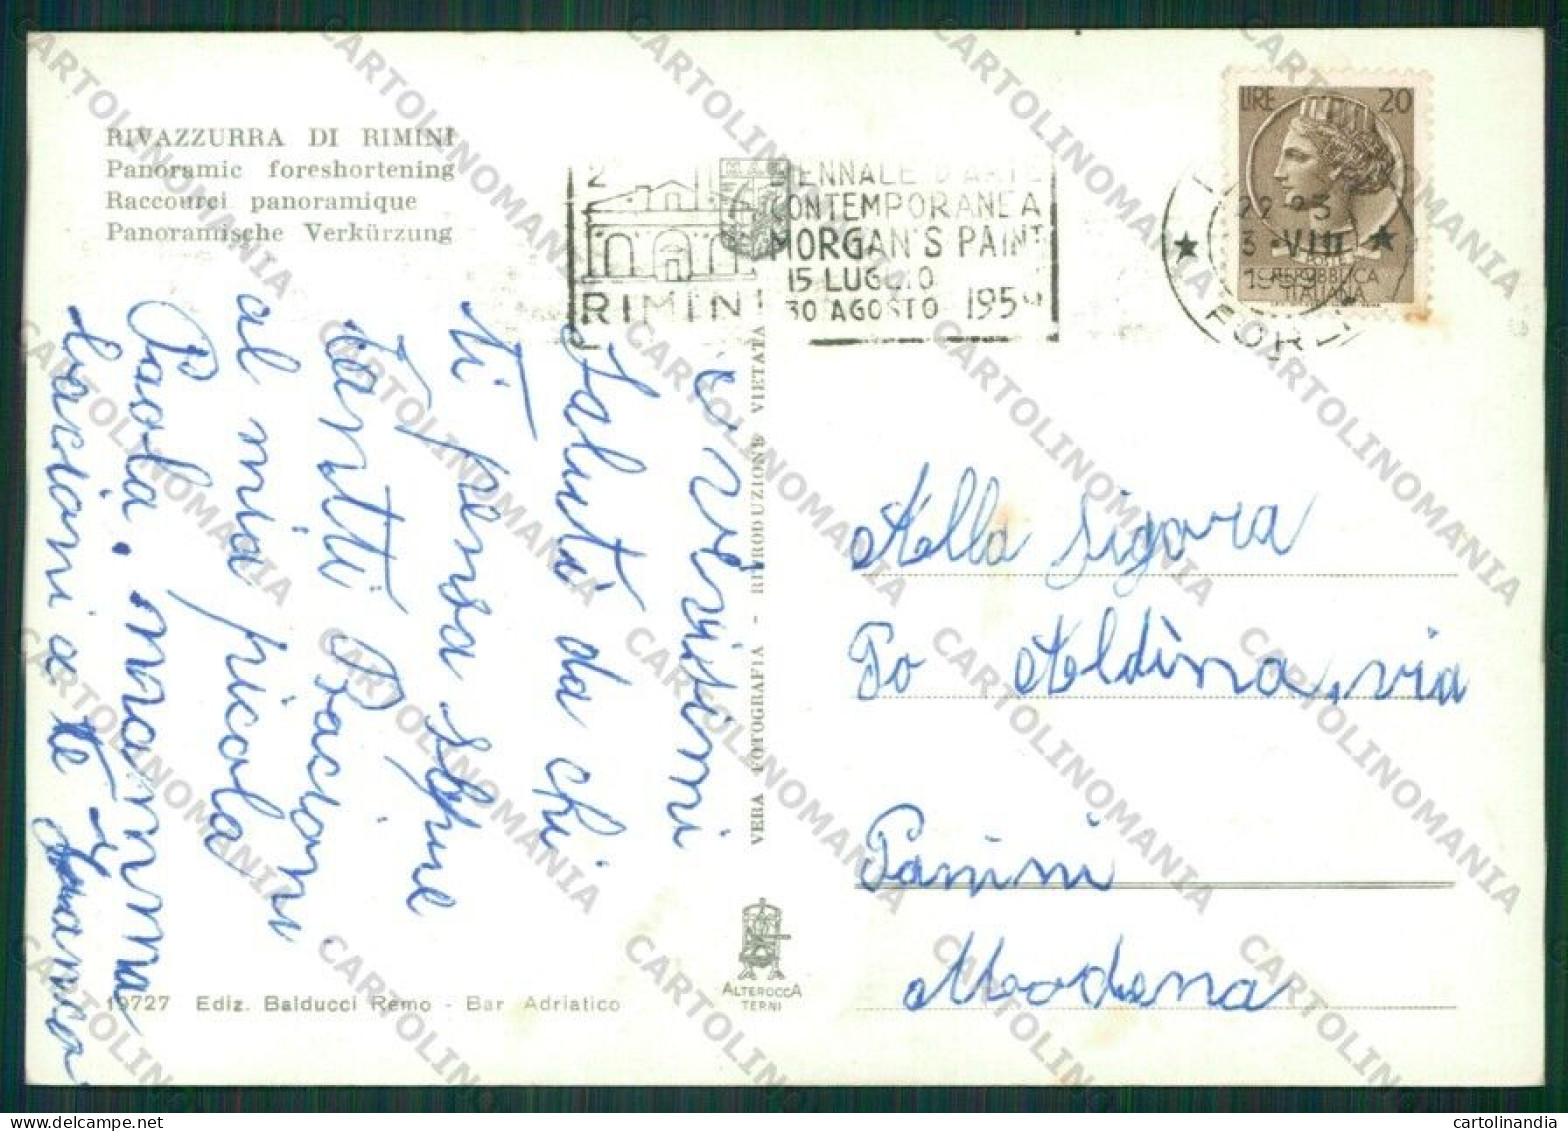 RIVAZZURRA DI RIMINI
Panoramic foreshortening
Raccourci panoramique
Panoramische Verkürzung
2
BIENNALE D'ARTE
CONTEMPORANEA
MORGAN'S PAINT
15 LUGLIO
30 AGOSTO 1959
RIMINI
LIRE 20
22-23
3-VIII
1959
REPUBBLICA
ITALIANA
FORLI
i vivisimi
Saluti da chi
ti pensa sempre
tantti Bacioni
al mia picola
Paola, mamma
bacioni a te
VERA FOTOGRAFIA - RIPRODUZIONE VIETATA
Alla Sigora
Po Aldina, via
Panini
Modena
ALTEROCCA
TERNI
19727 Ediz. Balducci Remo - Bar Adriatico
CARTOLINOMANIA
cartolinandia